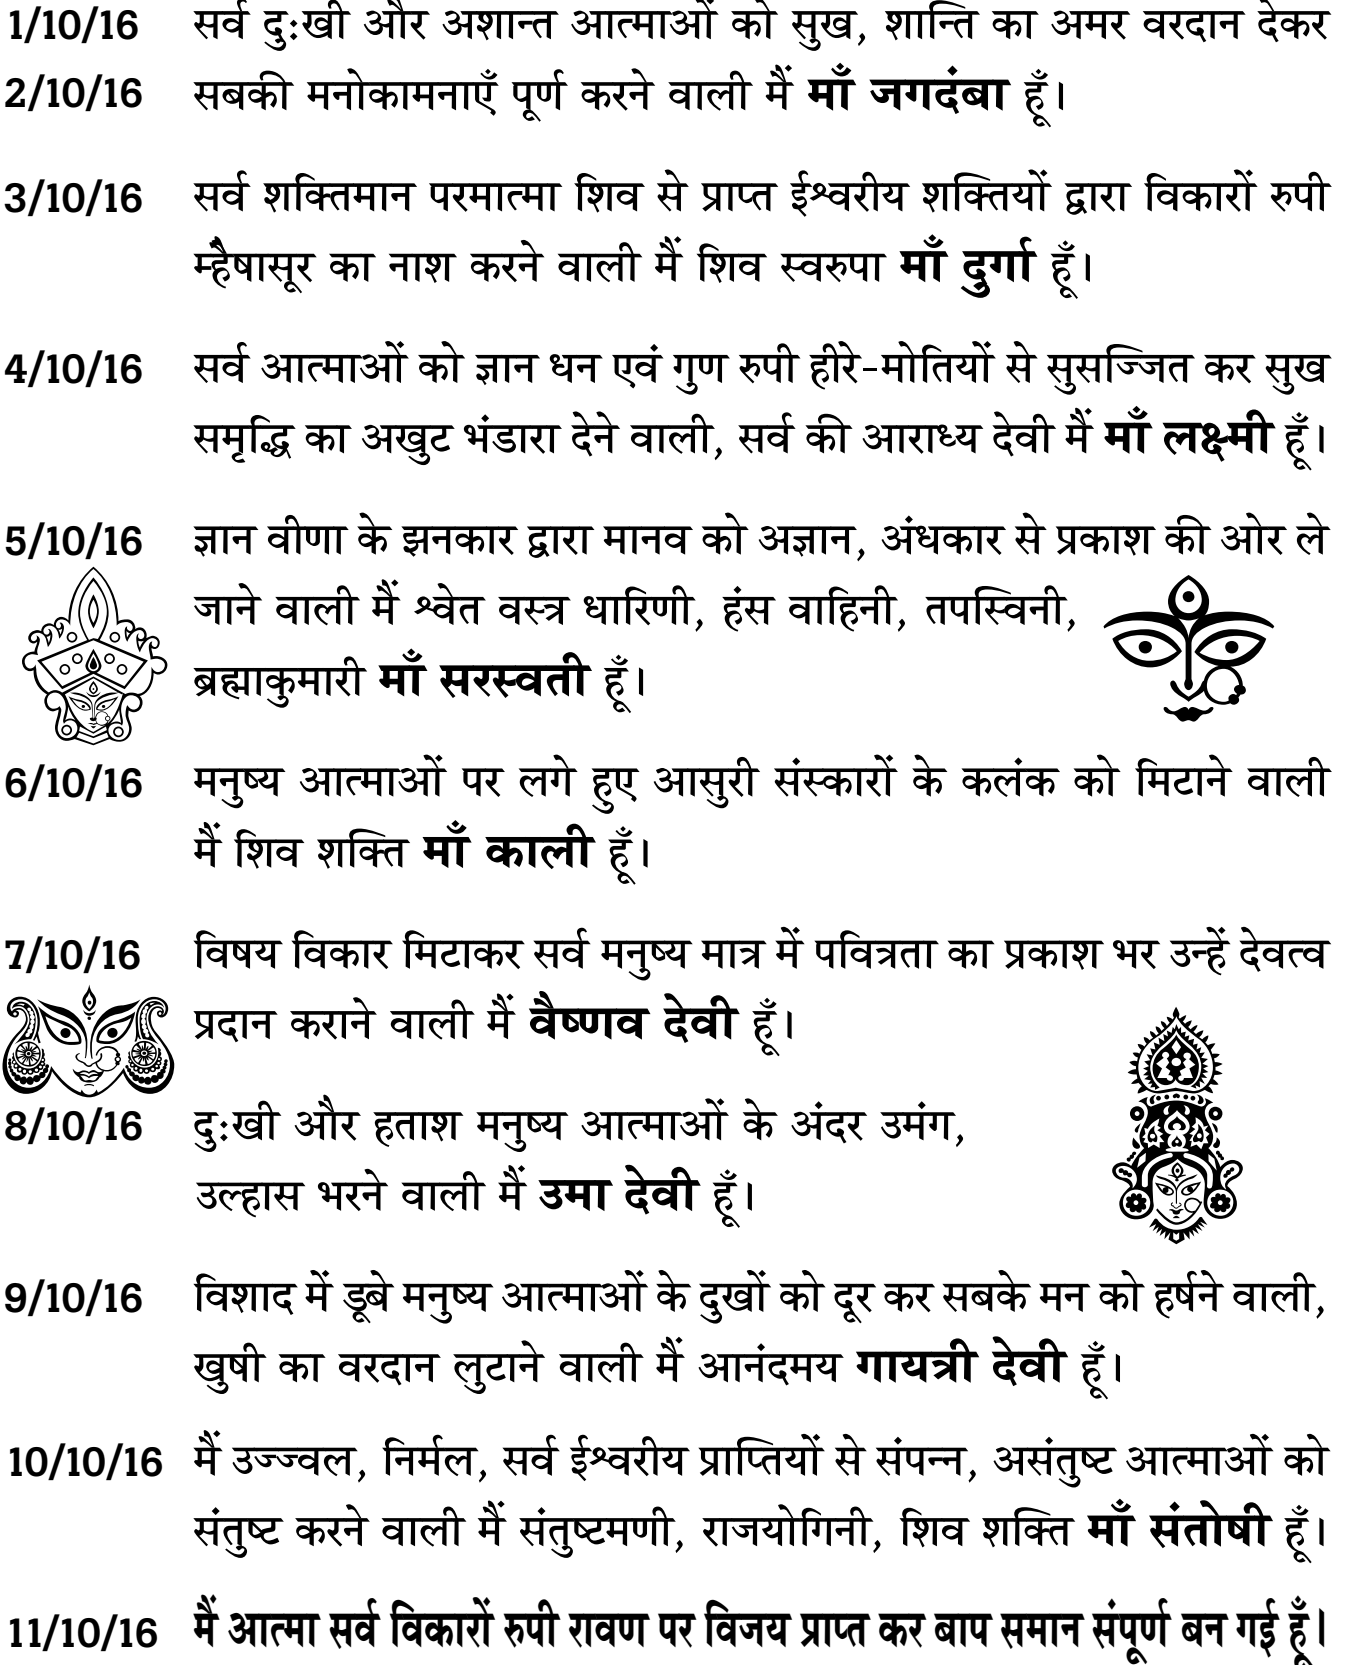 1/10/16 सर्व दुःखी और अशान्त आत्माओं को सुख, शान्ति का अमर वरदान देकर
2/10/16 सबकी मनोकामनाएँ पूर्ण करने वाली मैं माँ जगदंबा हूँ।
3/10/16 सर्व शक्तिमान परमात्मा शिव से प्राप्त ईश्वरीय शक्तियों द्वारा विकारों रुपी
म्हैषासूर का नाश करने वाली मैं शिव स्वरुपा माँ दुर्गा हूँ।
4/10/16 सर्व आत्माओं को ज्ञान धन एवं गुण रुपी हीरे-मोतियों से सुसज्जित कर सुख
समृद्धि का अखुट भंडारा देने वाली, सर्व की आराध्य देवी मैं माँ लक्ष्मी हूँ।
5/10/16 ज्ञान वीणा के झनकार द्वारा मानव को अज्ञान, अंधकार से प्रकाश की ओर ले
जाने वाली मैं श्वेत वस्त्र धारिणी, हंस वाहिनी, तपस्विनी,
ब्रह्माकुमारी माँ सरस्वती हूँ।
6/10/16 मनुष्य आत्माओं पर लगे हुए आसुरी संस्कारों के कलंक को मिटाने वाली
मैं शिव शक्ति माँ काली हूँ।
7/10/16 विषय विकार मिटाकर सर्व मनुष्य मात्र में पवित्रता का प्रकाश भर उन्हें देवत्व
प्रदान कराने वाली मैं वैष्णव देवी हूँ।
8/10/16 दुःखी और हताश मनुष्य आत्माओं के अंदर उमंग,
उल्हास भरने वाली मैं उमा देवी हूँ।
9/10/16 विशाद में डूबे मनुष्य आत्माओं के दुखों को दूर कर सबके मन को हर्षने वाली,
खुषी का वरदान लुटाने वाली मैं आनंदमय गायत्री देवी हूँ।
10/10/16 मैं उज्ज्वल, निर्मल, सर्व ईश्वरीय प्राप्तियों से संपन्न, असंतुष्ट आत्माओं को
संतुष्ट करने वाली मैं संतुष्टमणी, राजयोगिनी, शिव शक्ति माँ संतोषी हूँ।
11/10/16 मैं आत्मा सर्व विकारों रुपी रावण पर विजय प्राप्त कर बाप समान संपूर्ण बन गई हूँ।